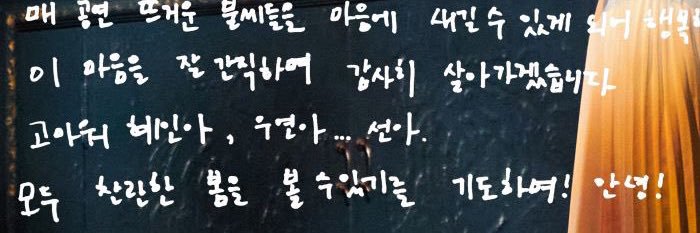 매 공연 뜨거운 불씨들을 마음에 새길 수 있게 되어 행복
이 마음을 잘 간직하며 감사히 살아가겠습니다
고마워 혜인아, 우연아... 선아.
모두 찬란한 봄을 볼 수 있기를 기도하며! 안녕!